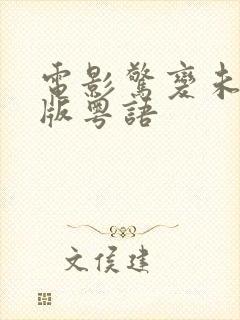 電影驚變未
版粵語
文侯建